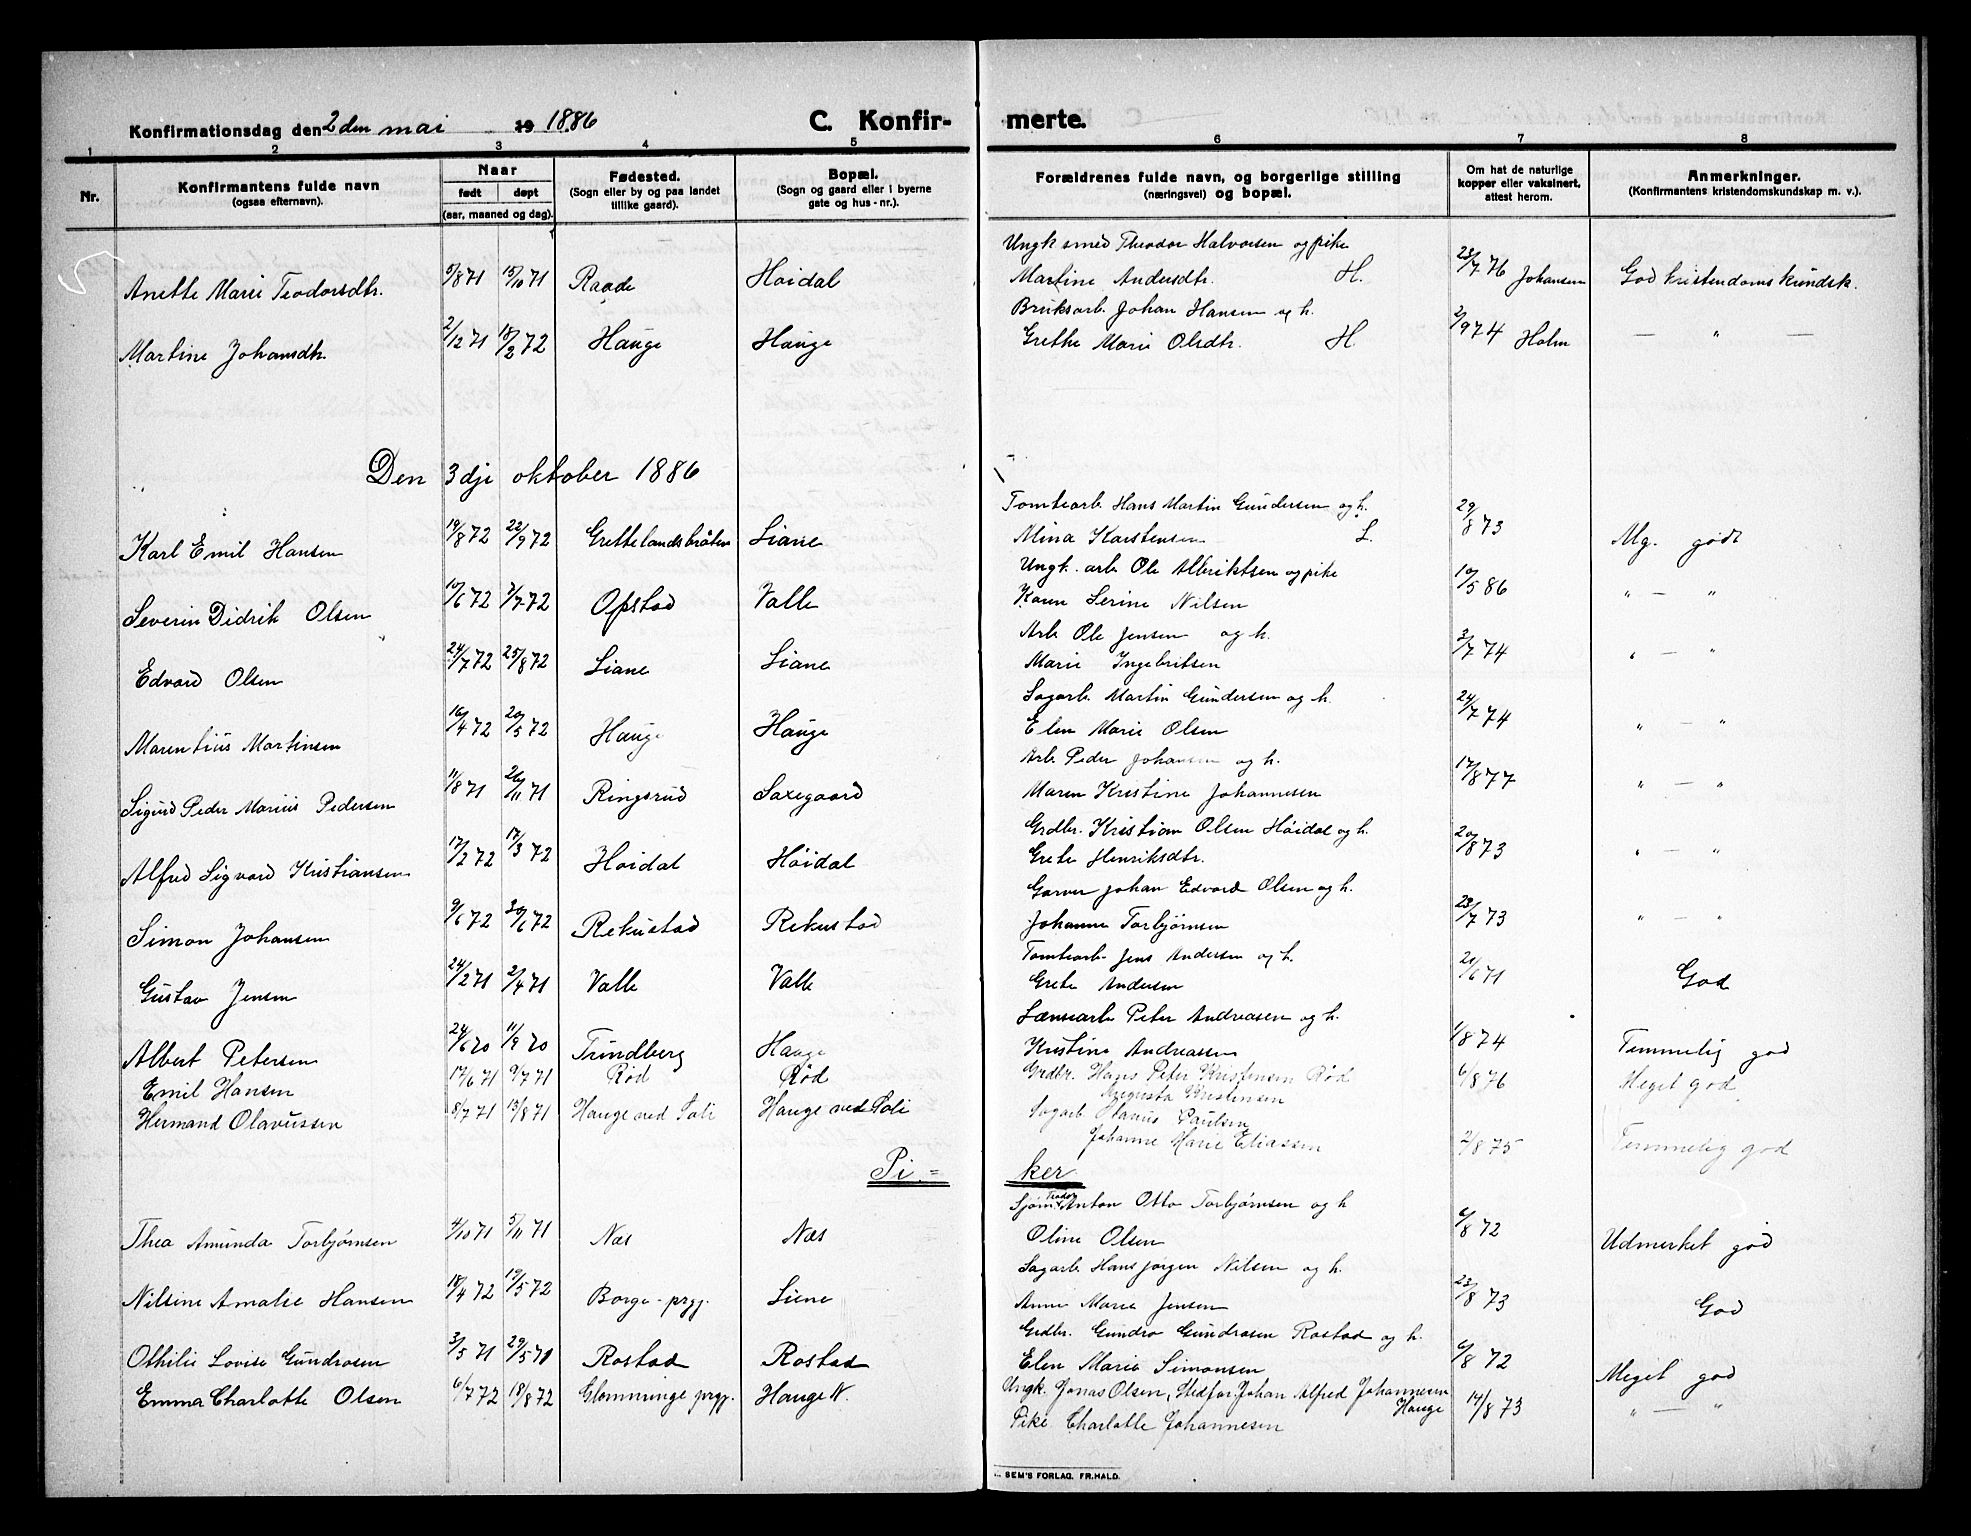 Konfirmationsdag den 2 den mai 19 1886 C. Konfir- merte.
1 2 3 4 5 6 7 8
Nr. Konfirmantens fulde navn (ogsaa efternavn). Naar født døpt (aar, maaned og dag). Fødested. (Sogn eller by og paa landet tillike gaard). Bopæl. (Sogn og gaard eller i byerne gate og hus-nr.). Forældrenes fulde navn, og borgerlige stilling (næringsvei) og bopæl. Om hat de naturlige kopper eller vaksinert, attest herom. Anmerkninger. (Konfirmantens kristendomskundskap m. v.).
Ungk smed Theodor Halvorsen og pike
Anette Marie Teodorsdtr. 5/8 71 15/10 71 Raade Høidal Martine Andersdtr. H. 23/7 76 Johansen God kristendomskundsk.
Bruksarb. Johan Hansen og h.
Martine Johansdtr. 2/12 71 18/2 72 Hauge Hauge Grethe Marie Olsdtr. H. 2/9 74 Holm — " —
Den 3dje oktober 1886
Tomtearb. Hans Martin Gundersen og h.
Karl Emil Hansen 19/8 72 22/9 72 Grettelandsbråten Liane Mina Karstensen L. 29/8 73 Mg. godt
Ungk. arb. Ole Albriktsen og pike
Severin Didrik Olsen 10/6 72 7/7 72 Opstad Valle Karen Serine Nilsen 10/5 86 " — "
Arb. Ole Jensen og h.
Edvard Olsen 24/7 72 25/8 72 Liane Liane Marie Ingebritsen 3/7 74 " — "
Sagarb. Martin Gundersen og h.
Marentius Martinsen 16/4 72 20/5 72 Hauge Hauge Elen Marie Olsen 24/7 74 " — "
Arb. Peder Johansen og h.
Sigurd Peder Marius Pedersen 11/8 71 26/11 71 Ringsrud Saxegaard Maren Kristine Johannesen 17/8 77 " — "
Grdbr. Kristian Olsen Høidal og h.
Alfred Sigvard Kristiansen 17/2 72 17/3 72 Høidal Høidal Grete Henriksdtr. 20/8 73 " — "
Garver Johan Edvard Olsen og h.
Simon Johansen 9/6 72 30/6 72 Rekustad Rekustad Johanne Torbjørnsen 23/7 73 " — "
Tomtearb. Jens Andersen og h.
Gustav Jensen 24/2 71 2/4 71 Valle Valle Grete Andersen 21/6 71 God
Lænsearb Peter Andreasen og h.
Albert Petersen 24/6 70 11/9 70 Trindberg Hauge Kristine Andreassen 1/8 74 Temmelig god
Emil Hansen 17/6 71 9/7 71 Rød Rød Grdbr. Hans Peter Kristensen Rød 6/8 76 Meget god
Augusta Kristensen
Hermand Olavussen 8/7 71 13/8 71 Hauge ved Soli Hauge ved Soli Sagarb Olavus Paulsen
Johanne Marie Eliassen 2/8 75 Temmelig god
Pi = ker
Sjøm. Teodor Anton Otto Torbjørnsen og h
Thea Amunda Torbjørnsen 4/10 71 5/11 71 Næs Næs Oline Olsen 6/8 72 Udmerket god
Sagarb. Hans Jørgen Nilsen og h.
Nilsine Amalie Hansen 18/4 72 19/5 72 Borge-prgj. Liene Anne Marie Jensen 23/8 73 God
Grdbr. Gundro Gundrosen Rostad og h.
Othilie Lovise Gundrosen 3/5 71 29/5 71 Rostad Rostad Elen Marie Simonsen 6/8 72 Meget god
Emma Charlotte Olsen 6/7 72 18/8 72 Glemminge prgj. Hauge N. Ungk. Jonas Olsen, Stedfar Johan Alfred Johannesen Hauge 14/8 73 " — "
Pike Charlotte Johannesen
SEM'S FORLAG. FR.HALD.